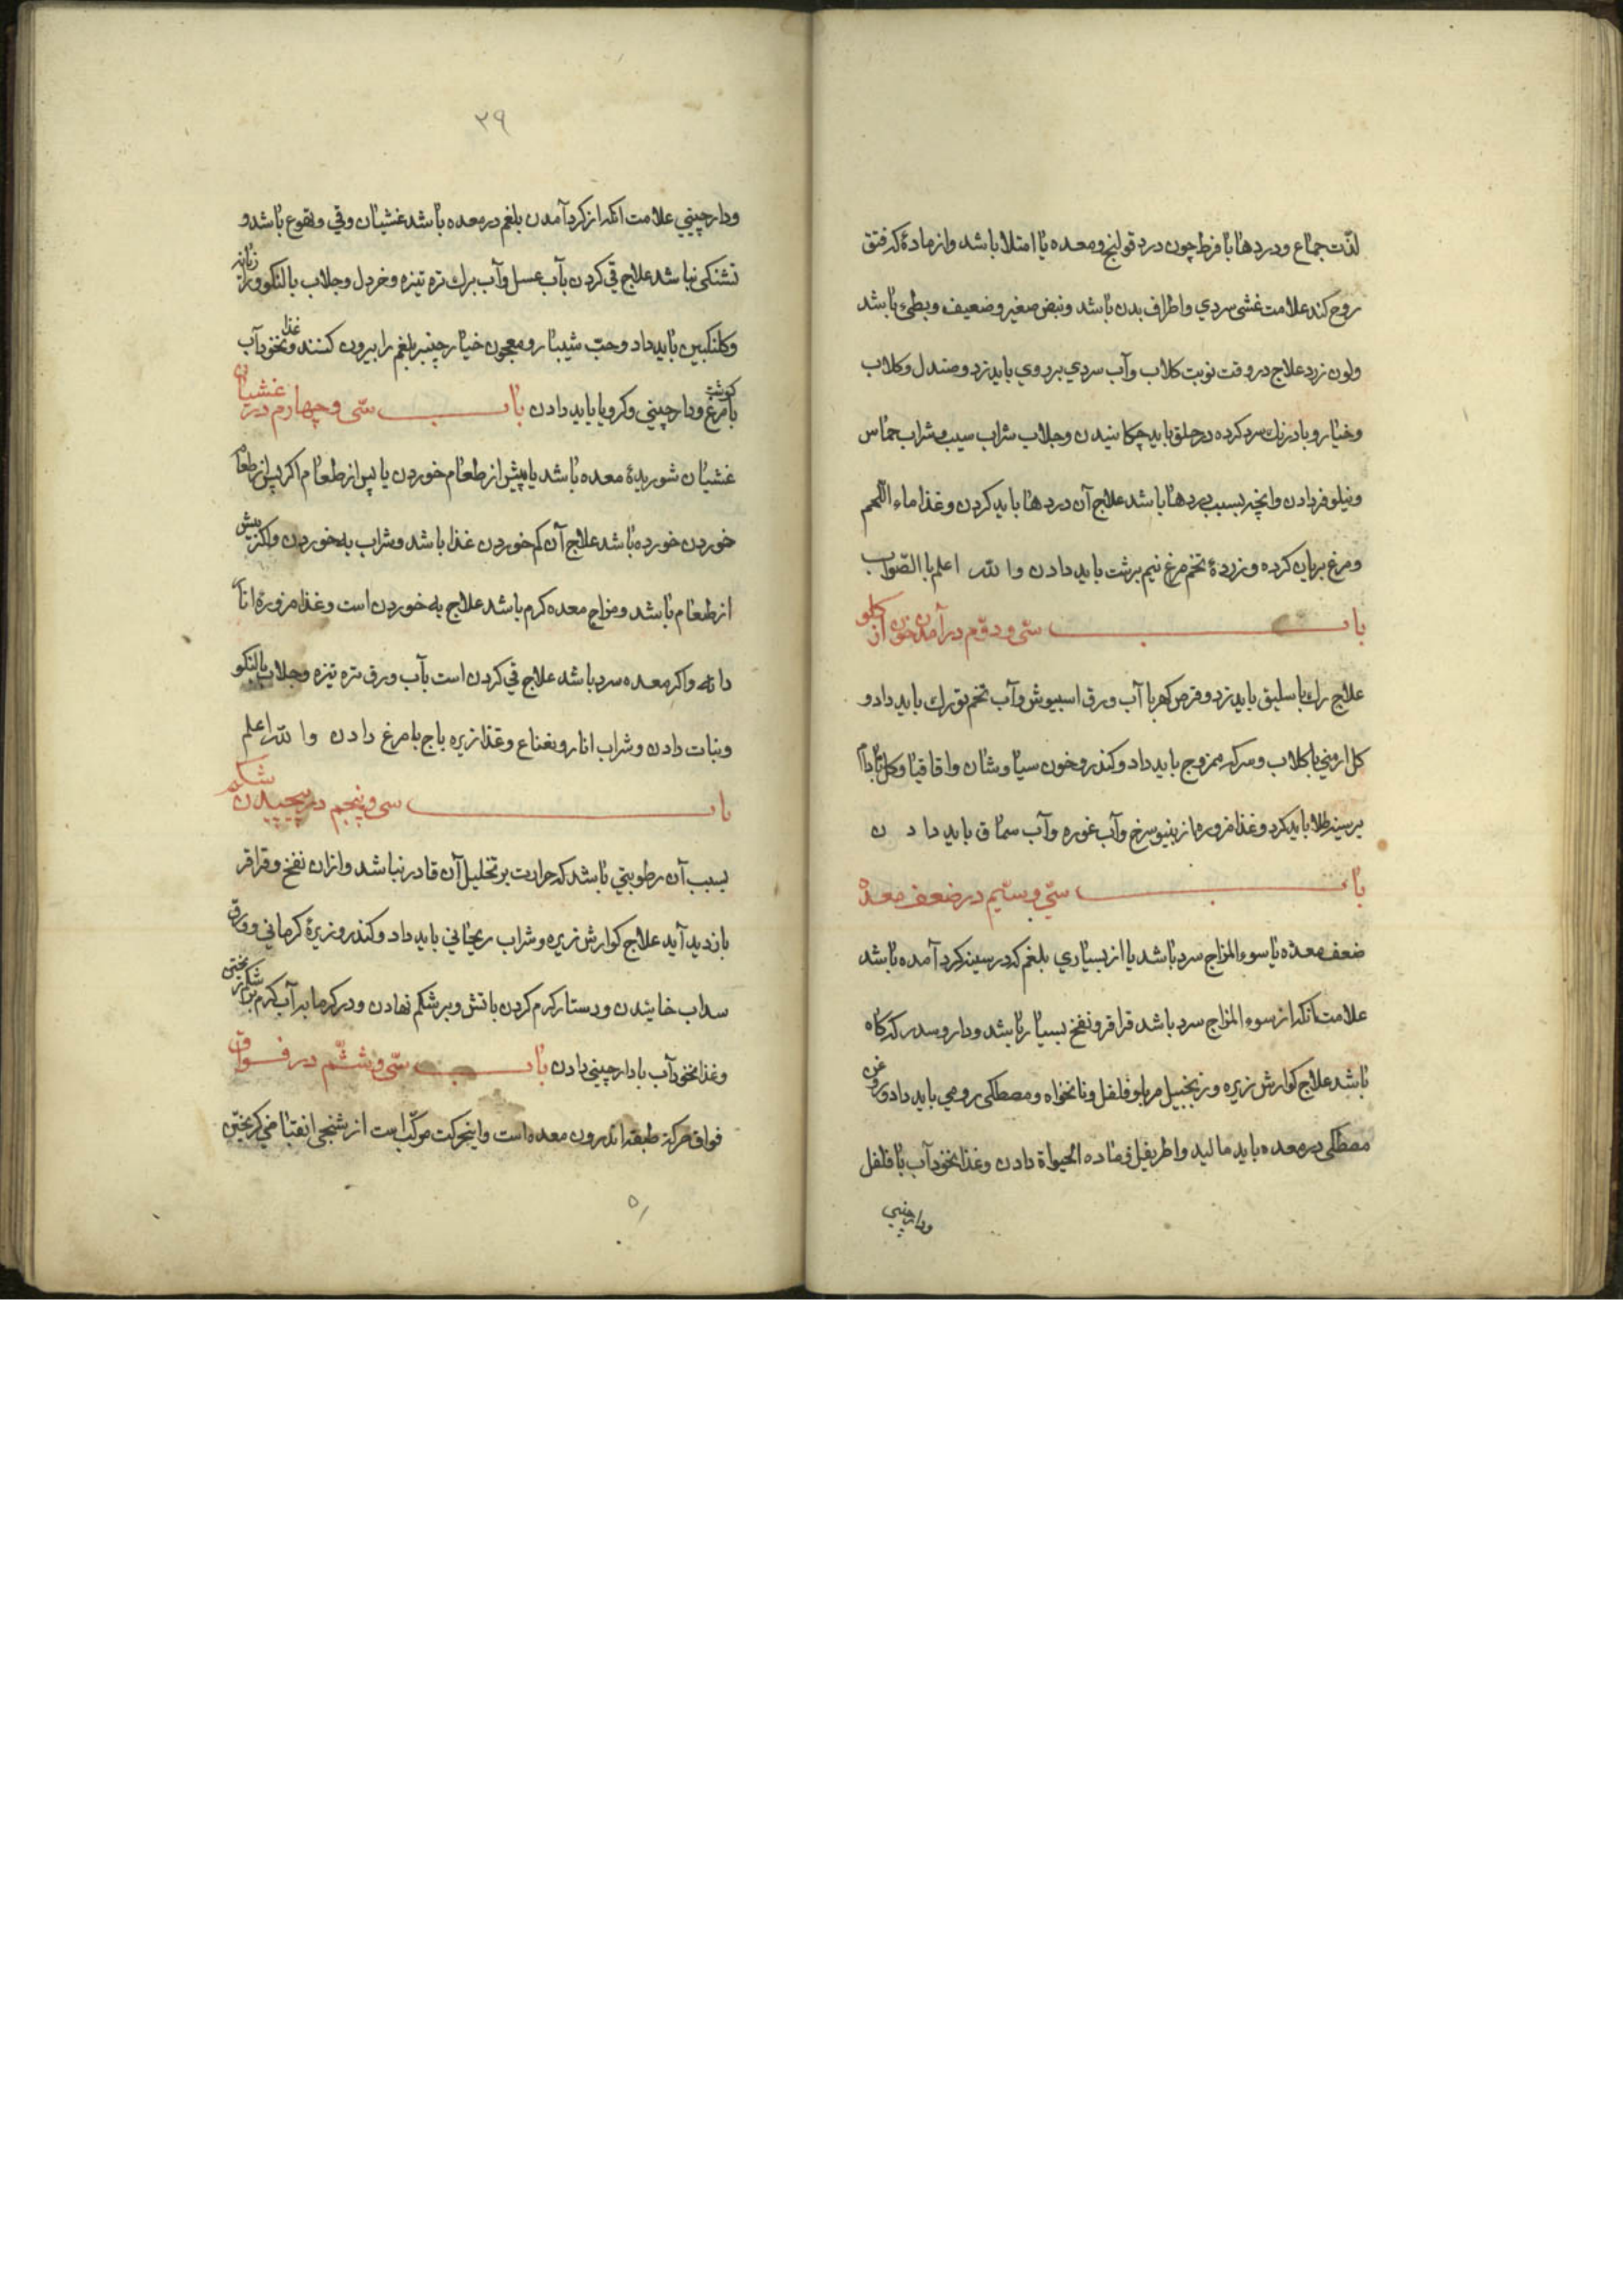 لذّت جماع ودردها با فرط چون درد قولنج ومعده یا امتلا باشد واز مادهٔ که فتق
روح کند علامت غشی سردي واطراف بدن باشد ونبض صغیر وضعیف وبطیء باشد
ولون زرد علاج در وقت نوبت کلاب وآب سردي بر روي باید زد وصندل وکلاب
وخیار وبادرنك سرد کرده در حلق باید چکانیدن وجلاب شراب سیب وشراب حماس
ونیلوفر دادن وانچه بسبب دردها باشد علاج آن دردها باید کردن وغذا ماء اللحم
ومرغ بریان کرده وزردهٔ تخم مرغ نیم برشت باید دادن والله اعلم باالصّواب
باب سّی ودوّم در آمدن خون از کلو
علاج رك باسلیق باید زد وقرص کهربا آب ورق اسبیوش وآب تخم تورك باید داد و
کل ارمني با کلاب وسرکه ممزوج باید داد وکندر وخون سیاوشان واقاقیا وکل
بر سینه طلا باید کرد وغذا مزوره از بنیو سرخ وآب غوره وآب سماق باید دادن
باب سّي وسیّم در ضعف معده
ضعف معده یا سوء المزاج سرد باشد یا از بسیاري بلغم که در سینه کرد آمده باشد
علامت آنکه از سوء المزاج سرد باشد قراقر ونفخ بسیار باشد ودار وسدر که کاه
باشد علاج کوارش زیره وزنجبیل مربا وفلفل ونانخواه ومصطکی رومي باید داد وروغن
مصطکی در معده باید مالید واطریفل ومادة الحیواة دادن وغذا نخود آب با فلفل
ودارچیني
٣٩
ودارچیني علامت آنکه از کرد آمدن بلغم در معده باشد غشیان وقي وتهوع باشد و
تشنکی نباشد علاج قي کردن بآب عسل وآب برك تره تیزه وخردل وجلاب بالنکو ورازیانه
وکلنکبین باید داد وحبّ شیبار ومعجون خیار چنبر بلغم را بیرون کنند وغذا نخود آب
با کوشت مرغ ودارچیني وکرویا باید دادن باب سّی وچهارم در غشیان
غشیان شوریدهٔ معده باشد یا پیش از طعام خوردن یا پس از طعام اکر پس از طعام
خوردن خورده باشد علاج آن کم خوردن غذا باشد وشراب به خوردن واکر پیش
از طعام باشد ومزاج معده کرم باشد علاج به خوردن است وغذا مزورهٔ انار
دانه واکر معده سرد باشد علاج قي کردن است بآب ورق تره تیزه وجلاب بالنکو
ونبات دادن وشراب انار ونعناع وغذا زیره باج با مرغ دادن والله اعلم
باب سی وپنجم در پیچیدن شکم
بسبب آن رطوبتي باشد که حرارت بر تحلیل آن قادر نباشد وازان نفخ وقراقر
بازدید آید علاج کوارش زیره وشراب ریحاني باید داد وکندر وزیرهٔ کرماني وورق
سداب خائیدن ودستار کرم کردن باتش وبر شکم نهادن ودر کرمابه آب کرم بر شکم ریختن
وغذا نخود آب با دارچیني دادن باب سّی وششّم در فواق
فواق حرکة طبقه اندرون معده است واینحرکت مرکّب است از تشنجی انقباضي کریختن